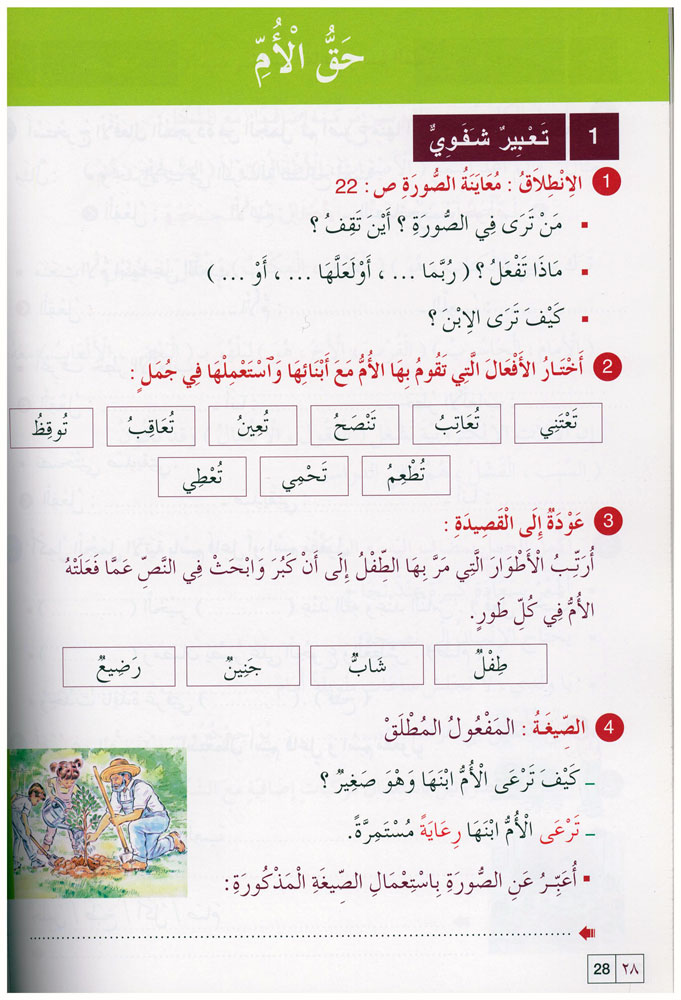 حَقُّ الْأُمِّ
1 تَعْبِيرٌ شَفَوِيٌّ
1 الِانْطِلَاقُ : مُعَايَنَةُ الصُّورَةِ ص : 22
▪ مَنْ تَرَى فِي الصُّورَةِ ؟ أَيْنَ تَقِفُ ؟
▪ مَاذَا تَفْعَلُ ؟ ( رُبَّمَا ... ، أَوْلَعَلَّهَا ... ، أَوْ ... )
▪ كَيْفَ تَرَى الِابْنَ ؟
2 أَخْتَارُ الْأَفْعَالَ الَّتِي تَقُومُ بِهَا الْأُمُّ مَعَ أَبْنَائِهَا وَاسْتَعْمِلْهَا فِي جُمَلٍ :
تَعْتَنِي تُعَاتِبُ تَنْصَحُ تُعِينُ تُعَاقِبُ تُوقِظُ
تُطْعِمُ تَحْمِي تُعْطِي
3 عَوْدَةٌ إِلَى الْقَصِيدَةِ :
أُرَتِّبُ الْأَطْوَارَ الَّتِي مَرَّ بِهَا الطِّفْلُ إِلَى أَنْ كَبُرَ وَابْحَثْ فِي النَّصِّ عَمَّا فَعَلَتْهُ
الْأُمُّ فِي كُلِّ طَورٍ.
طِفْلٌ شَابٌّ جَنِينٌ رَضِيعٌ
4 الصِّيغَةُ : المَفْعُولُ المُطْلَقْ
– كَيْفَ تَرْعَى الْأُمُّ ابْنَهَا وَهْوَ صَغِيرٌ ؟
– تَرْعَى الْأُمُّ ابْنَهَا رِعَايَةً مُسْتَمِرَّةً.
▪ أُعَبِّرُ عَنِ الصُّورَةِ بِاسْتِعْمَالِ الصِّيغَةِ الْمَذْكُورَةِ:
28 ٢٨